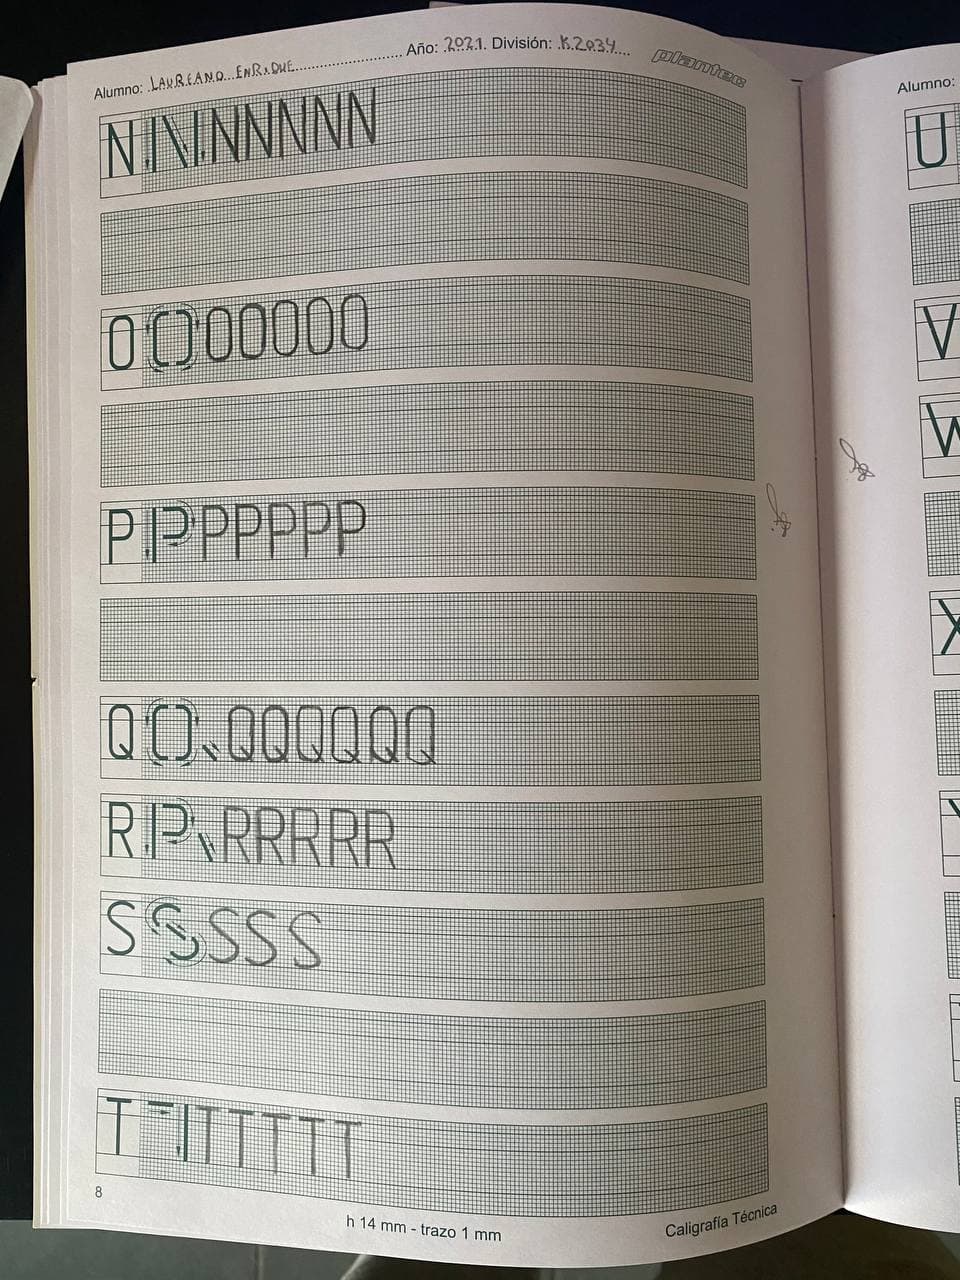 Alumno: LAUREANO ENRIQUE Año: 2021. División: K2034 plantec
N N N N N N N
O O O O O O O
P P P P P P P
Q Q Q Q Q Q Q Q
R R R R R R R
S S S S S
T T T T T T T
8
h 14 mm - trazo 1 mm
Caligrafía Técnica
Alumno:
U
V
W
X